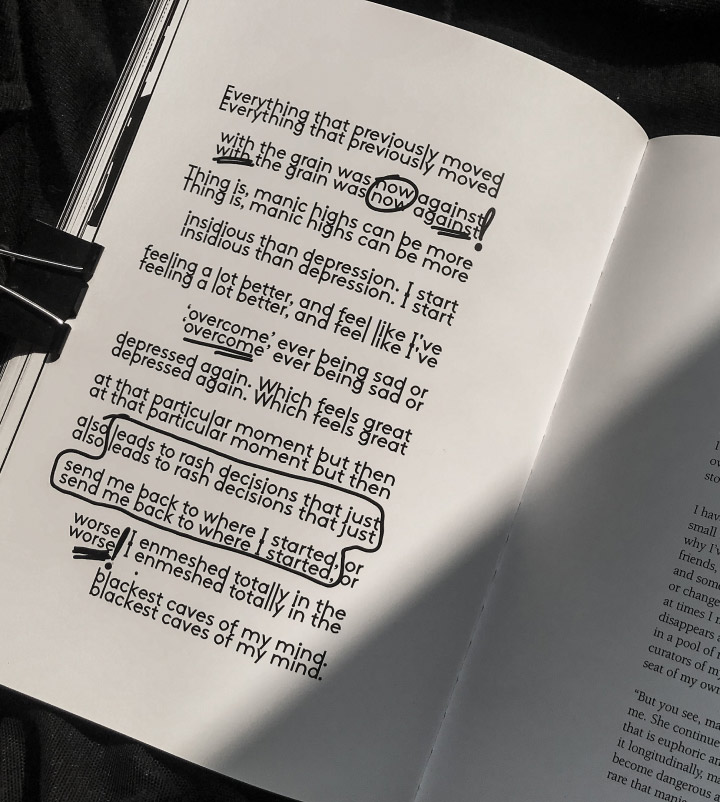 Everything that previously moved
Everything that previously moved
with the grain was now against!
with the grain was now against!
Thing is, manic highs can be more
Thing is, manic highs can be more
insidious than depression. I start
insidious than depression. I start
feeling a lot better, and feel like I've
feeling a lot better, and feel like I've
'overcome' ever being sad or
'overcome' ever being sad or
depressed again. Which feels great
depressed again. Which feels great
at that particular moment but then
at that particular moment but then
also leads to rash decisions that just
also leads to rash decisions that just
send me back to where I started, or
send me back to where I started, or
worse! I enmeshed totally in the
worse! I enmeshed totally in the
blackest caves of my mind.
blackest caves of my mind.
I
sto
I hav
small
why I'v
friends,
and som
or change
at times I
disappears
in a pool of
curators of m
seat of my own
"But you see, ma
me. She continue
that is euphoric an
it longitudinally, m
become dangerous a
rare that mania